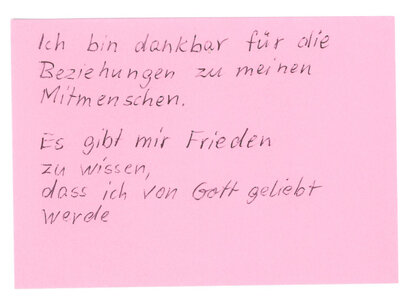 Ich bin dankbar für die
Beziehungen zu meinen
Mitmenschen.
Es gibt mir Frieden
zu wissen,
dass ich von Gott geliebt
werde